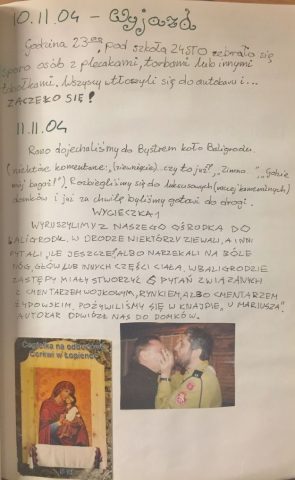 10.11.04 - Wyjazd
Godzina 23⁰⁰, pod szkołą 24STO zebrało się
sporo osób z plecakami, torbami lub innymi
tobołkami. Wszyscy wtłoczyli się do autokaru i...
ZACZĘŁO SIĘ!
11.11.04
Rano dojechaliśmy do Bystrem koło Baligrodu.
(niektóre komentarze: „(ziewnięcie)... czy to już?", „Zimno", „Gdzie
mój bagaż!"). Rozbiegliśmy się do luksusowych (raczej kameralnych)
domków i już za chwilę byliśmy gotowi do drogi.
WYCIECZKA 1
WYRUSZYLIŚMY Z NASZEGO OŚRODKA DO
BALIGRODU. W DRODZE NIEKTÓRZY ZIEWALI, A INNI
PYTALI „ILE JESZCZE?" ALBO NARZEKALI NA BÓLE
NÓG, GŁÓW LUB INNYCH CZĘŚCI CIAŁA. W BALIGRODZIE
ZASTĘPY MIAŁY STWORZYĆ 6 PYTAŃ ZWIĄZANYCH
Z CMENTARZEM WOJKOWYM, RYNKIEM, ALBO CMENTARZEM
ŻYDOWSKIM. POŻYWILIŚMY SIĘ W KNAJPIE „U MARIUSZA".
AUTOKAR ODWIÓZŁ NAS DO DOMKÓW.
Cegiełka na odbudowę
Cerkwi w Łopience